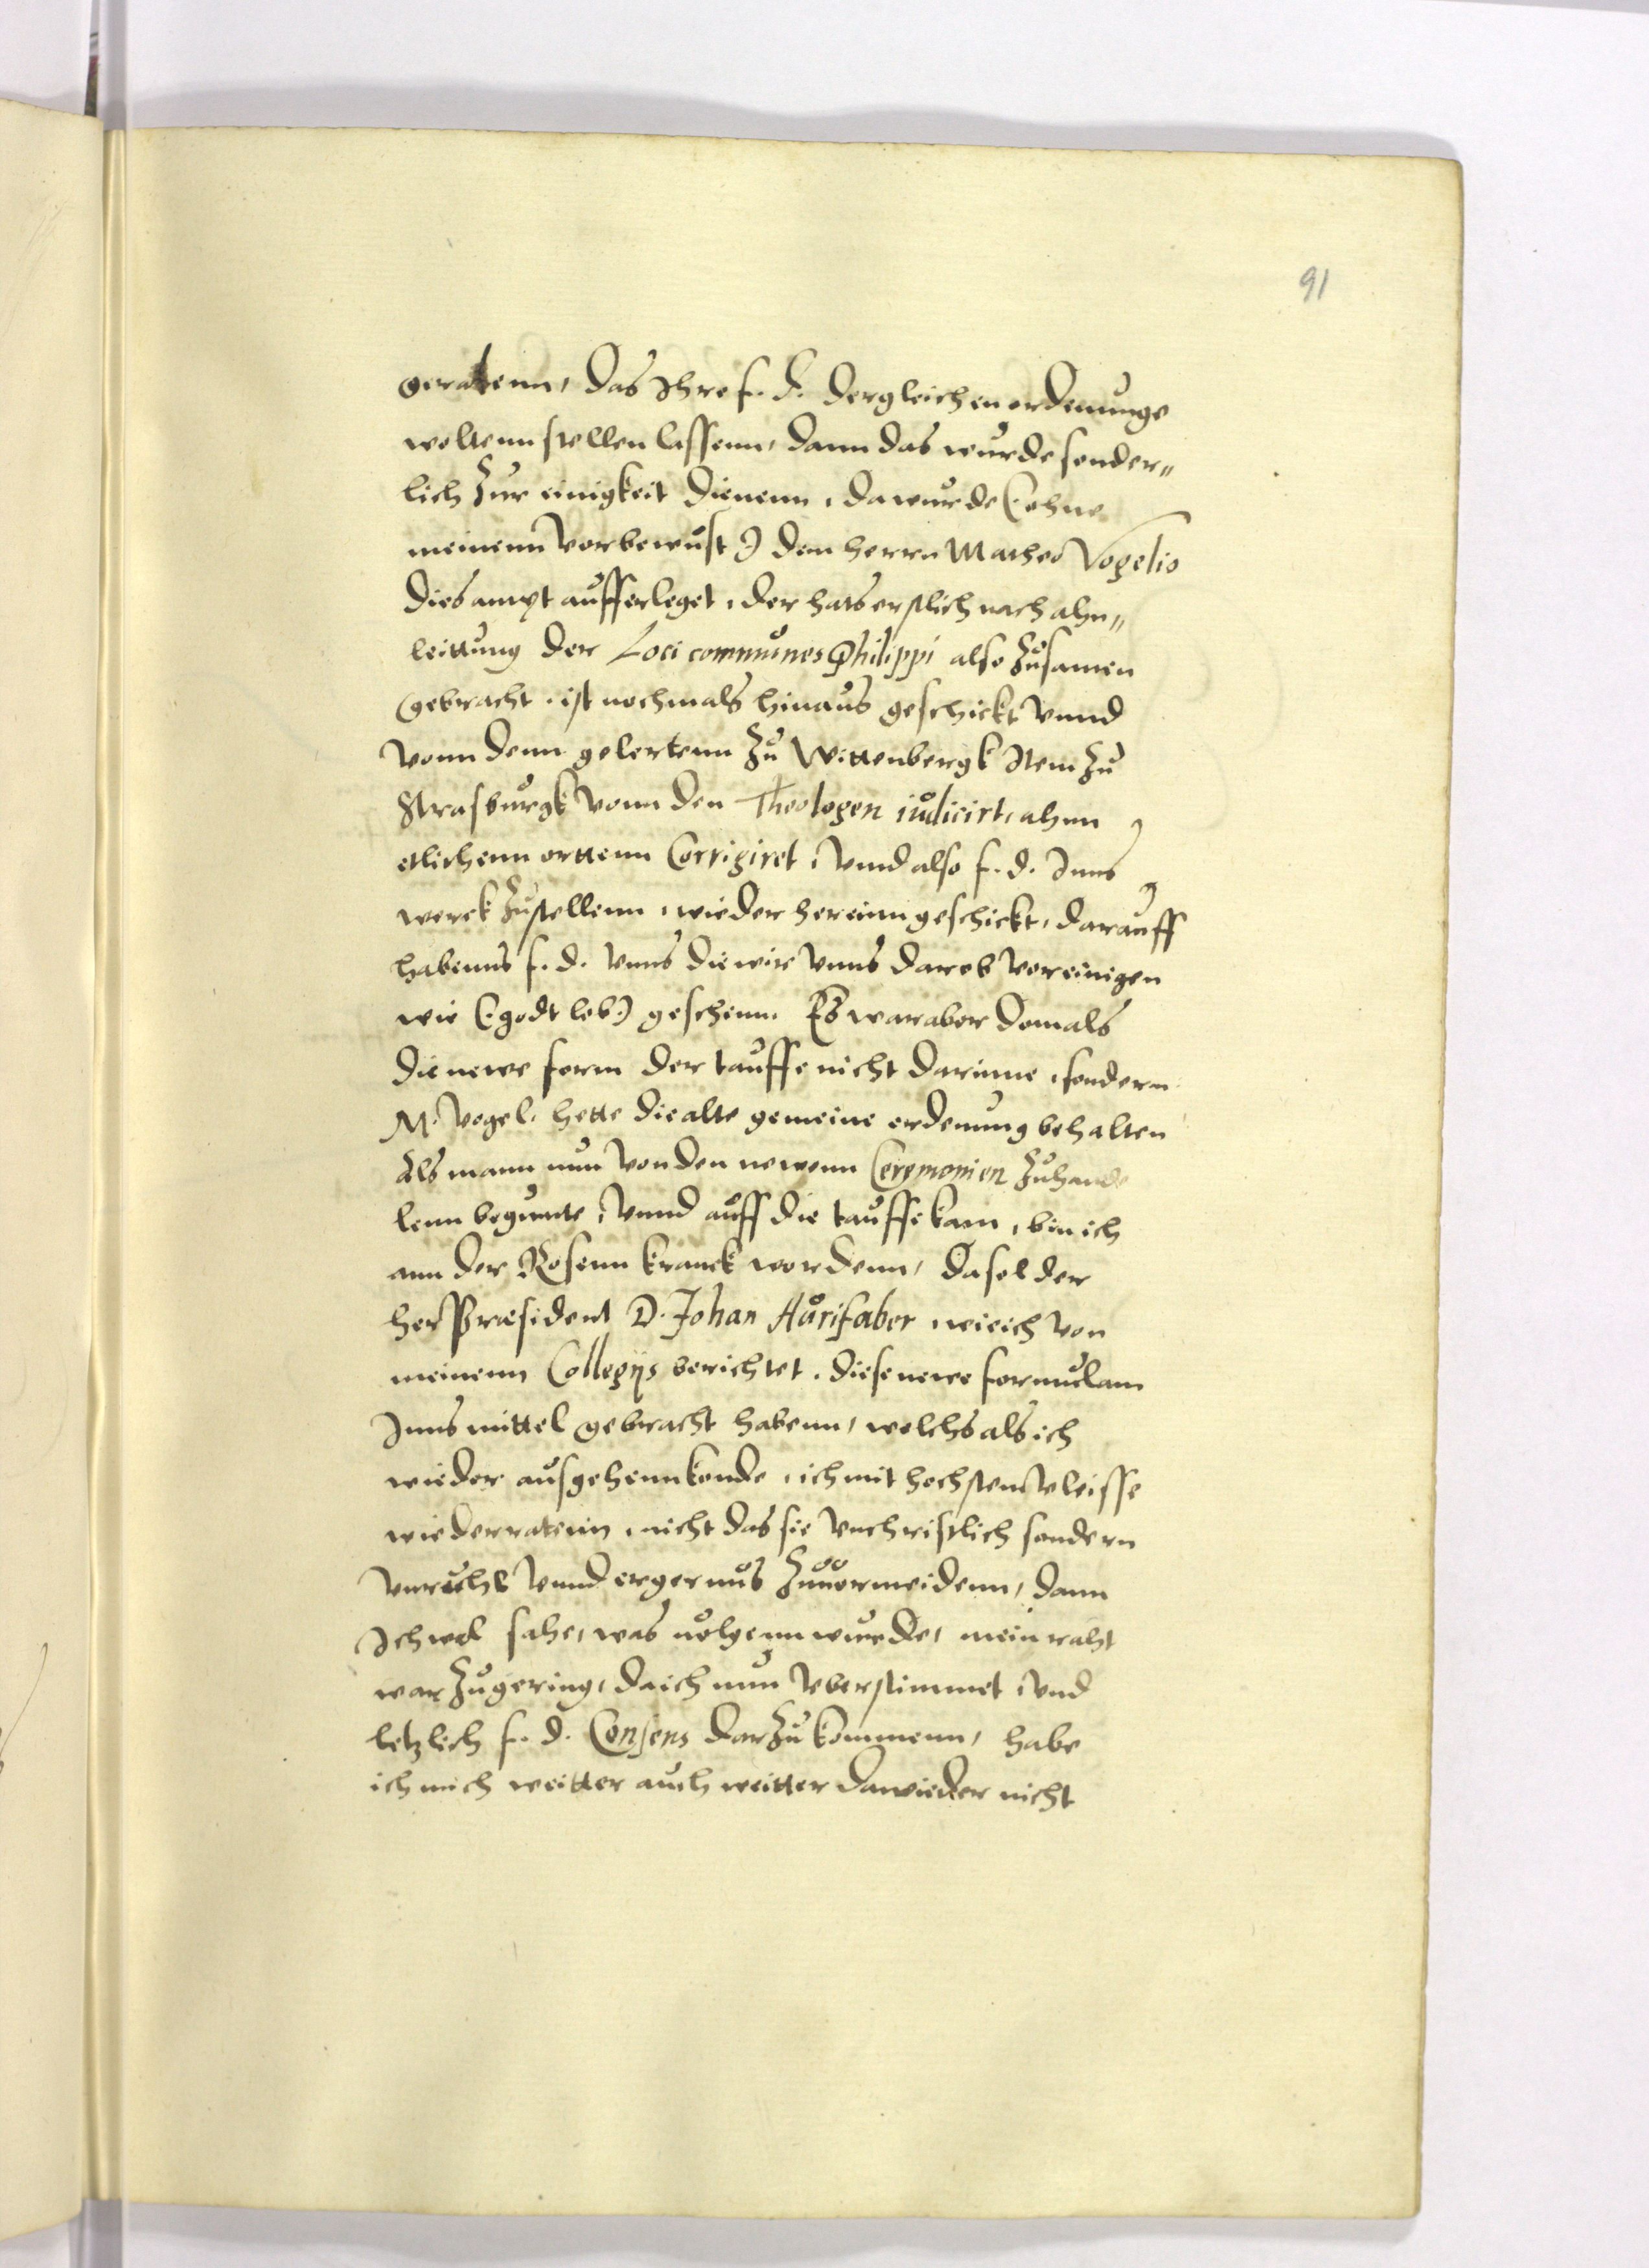 91
geratenn, das Ihre f. d. dergleichen ordenunge
woltenn stellen lassenn, dann das wurde sonder„
lich Zur einigkeit dienenn, da wurde (ohne
meinenn vorbewust) dem herrn Matheo Vogelio
dies ampt aufferleget, der hats erstlich nach ahn„
leittung der Loci communes Philippi also Zusamen
gebracht, ist nochmals hinaus geschickt vnnd
vonn denn gelertenn Zu Wittenbergk Item Zu
Strasburgk vonn den Theologen iudicirt, ahnn
etlichenn orttenn Corrigiret, vnnd also f. d. Inns
werck Zustellenn, wieder hereinn geschickt, darauff
habenns f. d. vnns die wir vnns darob voreinigen
wie (godt lob) geschenn. Es war aber domals
die newe form der tauffe nicht darinne, sondern
M. Vogel. hette die alte gemeine ordenung behalten
Als mann nun von den newenn Ceremonien Zuhande
lenn begunte, vnnd auff die tauffe kam, bin ich
ann der Rosenn kranck wordenn, da sol der
her Præsident D. Johan Aurifaber wie ich von
meinenn Collegijs berichtet, diese newe formulam
Inns mittel gebracht habenn, welchs als ich
wieder ausgehenn konde, ich mit hochstem vleisse
wiederratenn, nicht das sie vnchristlich sondern
vnruhe vnnd ergernus Zuuormeidenn, dann
Ich wol sahe, was uolgenn wurde, mein raht
war Zugering, da ich nun vberstimmet, vnd
letzlich f. d. Consens darzu kommenn, habe
ich mich weitter auch weitter dawieder nicht